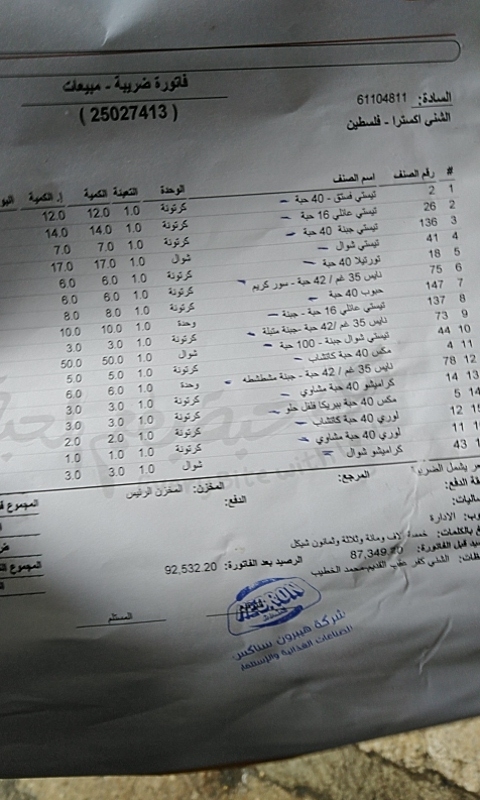 فاتورة ضريبة - مبيعات
( 25027413 )
السادة: 61104811
الشني اكسترا - فلسطين
# رقم الصنف اسم الصنف الوحدة التعبئة الكمية إ. الكمية
1 2 تيستي فستق - 40 حبة كرتونة 1.0 12.0 12.0
2 26 تيستي عائلي 16 حبة كرتونة 1.0 14.0 14.0
3 136 تيستي جبنة 40 حبة كرتونة 1.0 7.0 7.0
4 41 تيستي شوال شوال 1.0 17.0 17.0
5 18 تورتيلا 40 حبة كرتونة 1.0 6.0 6.0
6 75 نايس 35 غم / 42 حبة - سور كريم كرتونة 1.0 6.0 6.0
7 147 حبوب 40 حبة كرتونة 1.0 8.0 8.0
8 137 تيستي عائلي 16 حبة - جبنة وحدة 1.0 10.0 10.0
9 73 نايس 35 غم /42 حبة- جبنة متبلة كرتونة 1.0 3.0 3.0
10 44 تيستي شوال جبنة - 100 حبة شوال 1.0 50.0 50.0
11 4 مكس 40 حبة كاتشاب كرتونة 1.0 5.0 5.0
12 78 نايس 35 غم / 42 حبة - جبنة مشطشطه وحدة 1.0 6.0 6.0
13 14 كراميشو 40 حبة مشاوي كرتونة 1.0 3.0 3.0
14 5 مكس 40 حبة بيبريكا فلفل حلو كرتونة 1.0 3.0 3.0
12 لوري 40 حبة كاتشاب كرتونة 1.0 2.0 2.0
11 لوري 40 حبة مشاوي كرتونة 1.0 3.0 3.0
43 كراميشو شوال شوال 1.0 3.0 3.0
يشمل الضريبة
المرجع: المخزن: المخزن الرئيسي
الدفع: الدفع:
المجموع
الادارة
بالكلمات: خمسة الاف ومائة وثلاثة وثمانون شيكل
قبل الفاتورة: 87,349.20 الرصيد بعد الفاتورة: 92,532.20
المجموع
الشني كفر عقب القديم-محمد الخطيب
المستلم
HEBRON
شركة هيبرون سناكس
للصناعات الغذائية والإستثمار